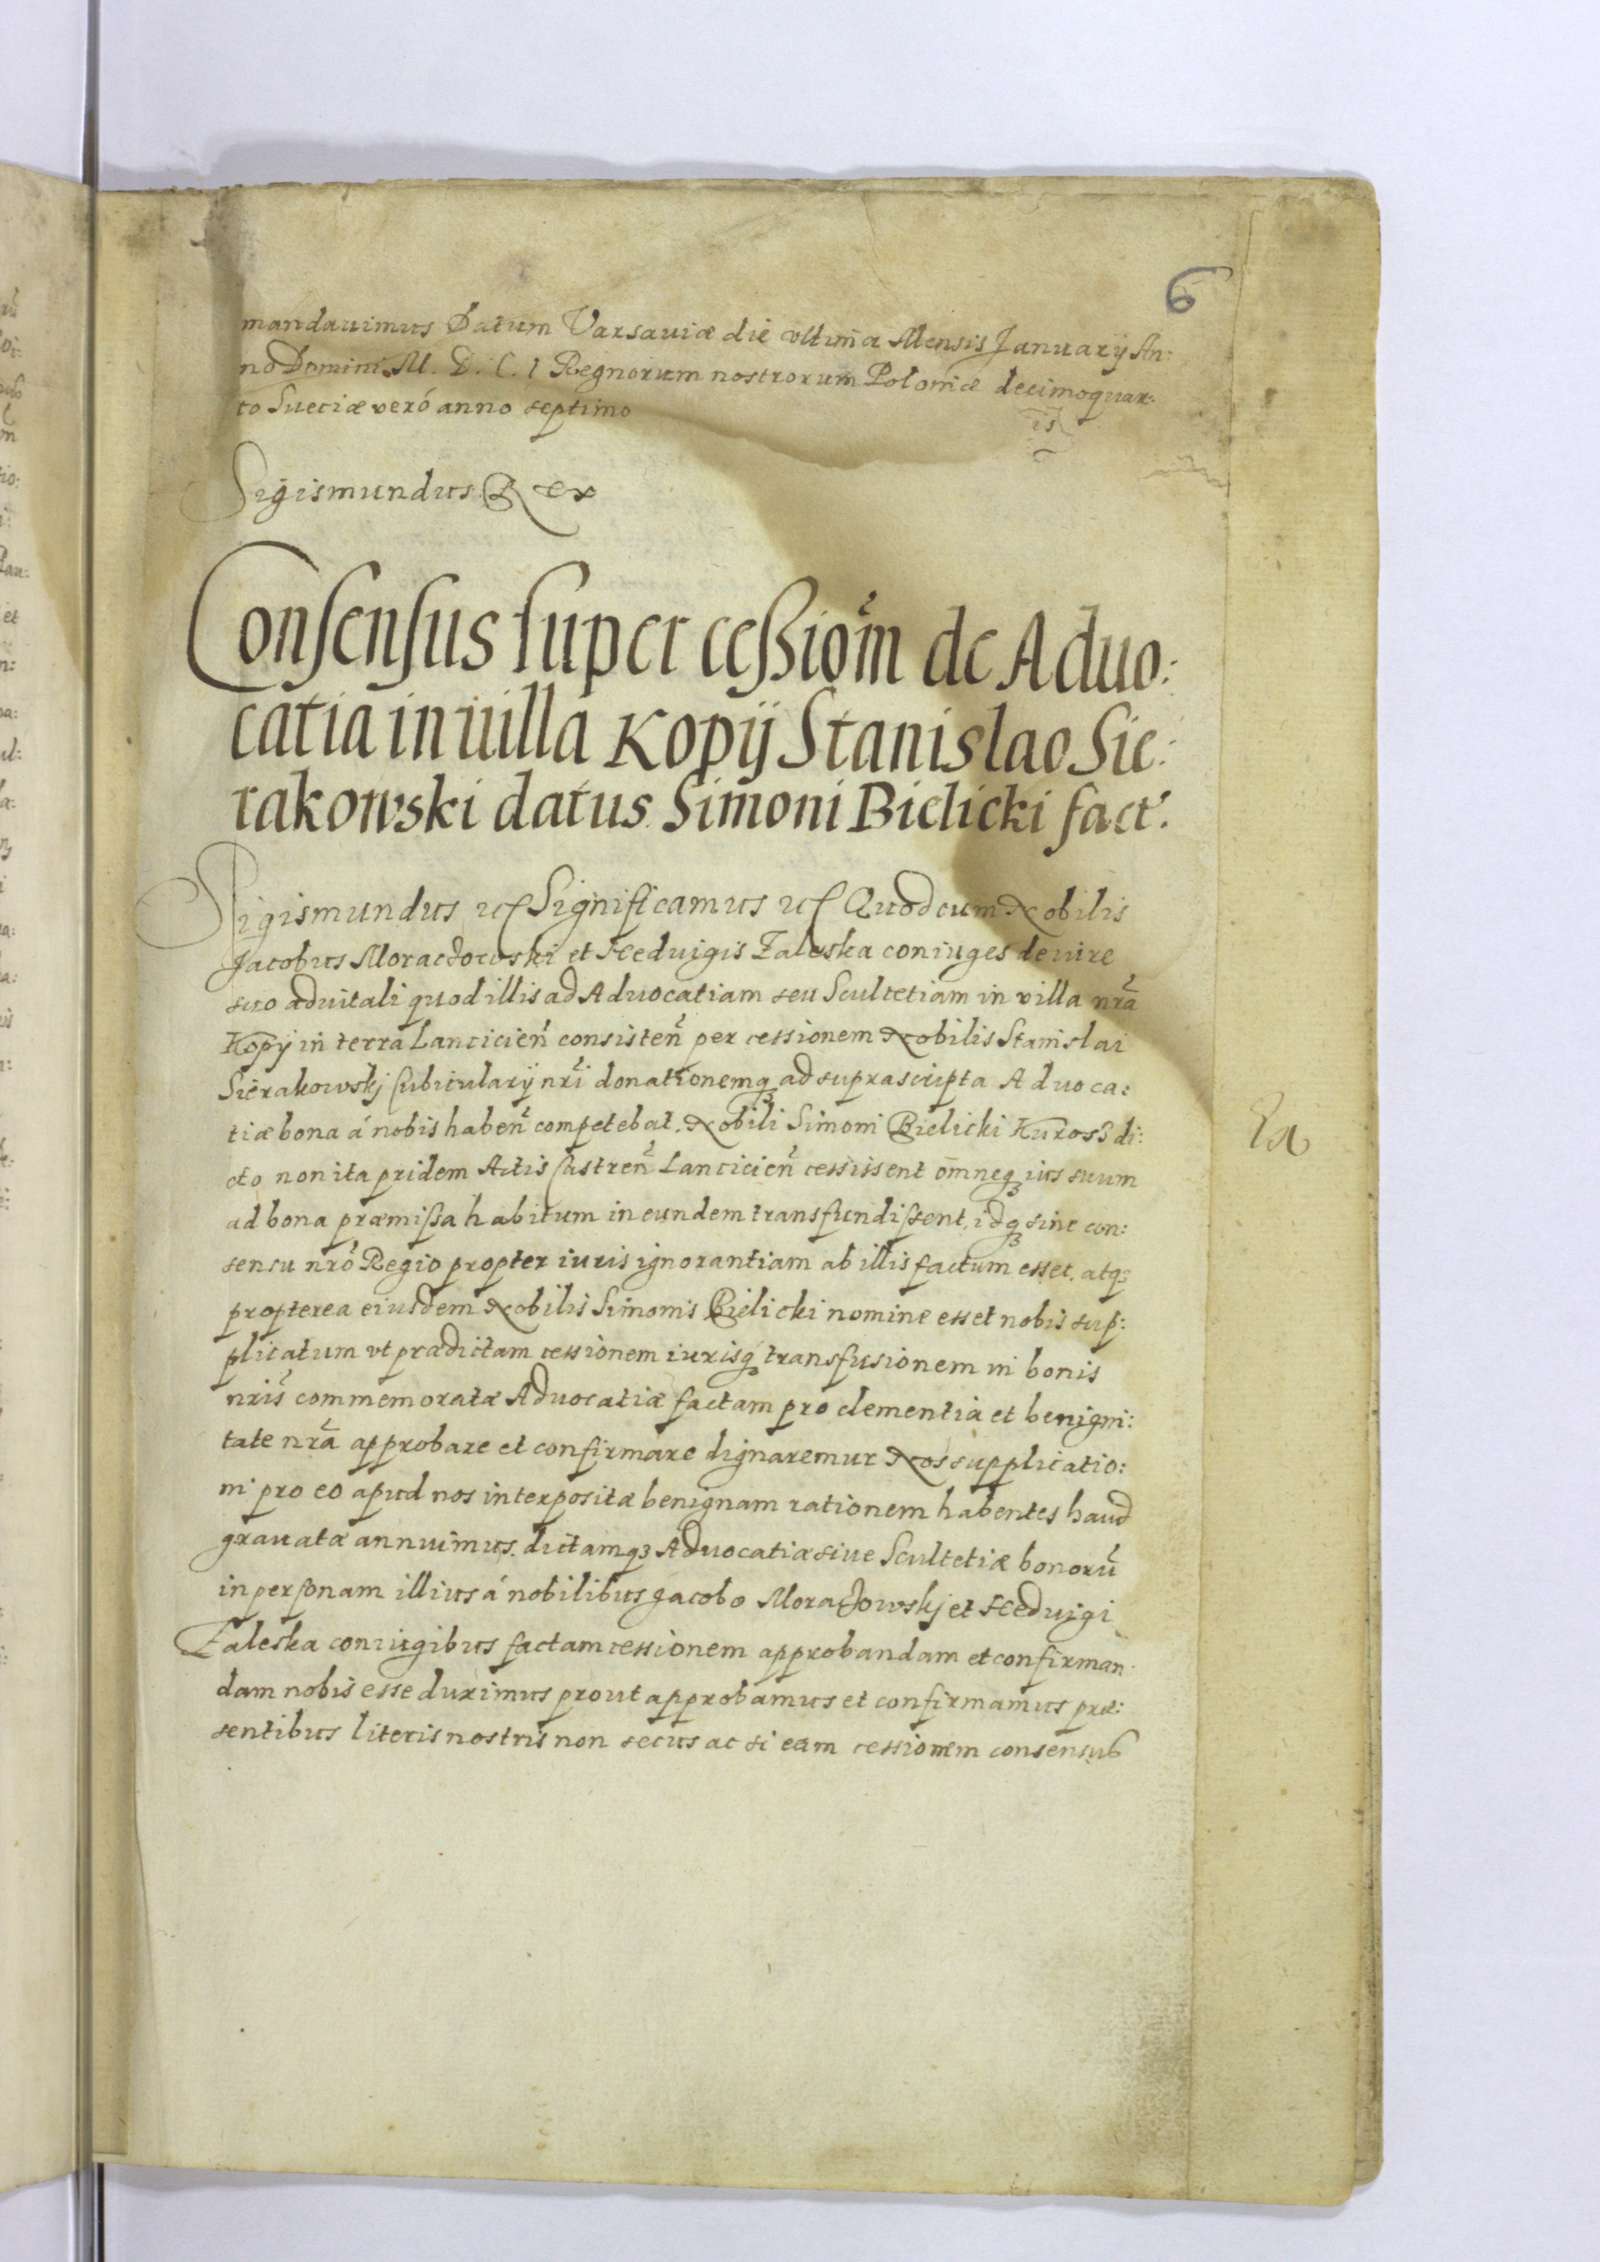 6
mandauimus Datum Varsauiæ die vltima Mensis January An:
no Domini M. D. C. I Regnorum nostrorum Poloniæ decimoquar:
to Sueciæ veró anno septimo
is
Sigismundus Rex
Consensus super cessiom̃ de Aduo:
catia in uilla Kopÿ Stanislao Sie:
rakowski datus Simoni Bielicki fact.
Sigismundus Significamus Quod cum Nobilis
Jacobus Moraczowski et Heduigis Zaleska coniuges de iure
suo aduitali quod illis ad Aduocatiam seu Scultetiam in villa nr̃a
Kopÿ in terra Lancicien̄ consisten̄ per cessionem Nobilis Stanislai
Sierakowskj Cubicularÿ nr̃i donationemq ad suprascripta Aduoca:
tiæ bona á nobis haben̄ competebat. Nobili Simoni Bielicki Kurosz di:
cto non ita pridem Actis Castren̄ Lancicien̄ cessissent om̄neq ius suum
ad bona præmissa habitum in eundem transfundissent, idq sine con:
sensu nr̃o Regio propter iuris ignorantiam ab illis factum esset. atq
propterea eiusdem Nobilis Simonis Bielicki nomine esset nobis sup:
plicatum vt prædictam cessionem iurisq transfusionem in bonis
nr̃is commemoratæ Aduocatiæ factam pro clementia et benigni:
tate nr̃a approbare et confirmare dignaremur Nos supplicatio:
ni pro eo apud nos interpositæ benignam rationem habentes haud
grauatæ annuimus. dictamq Aduocatiæ siue Scultetiæ bonorū
in personam illius á nobilibus Jacobo Moraczowskj et Heduigi
Zaleska coniugibus factam cessionem approbandam et confirman
dam nobis esse duximus prout approbamus et confirmamus præ:
sentibus literis nostris non secus ac si eam cessionem consensus